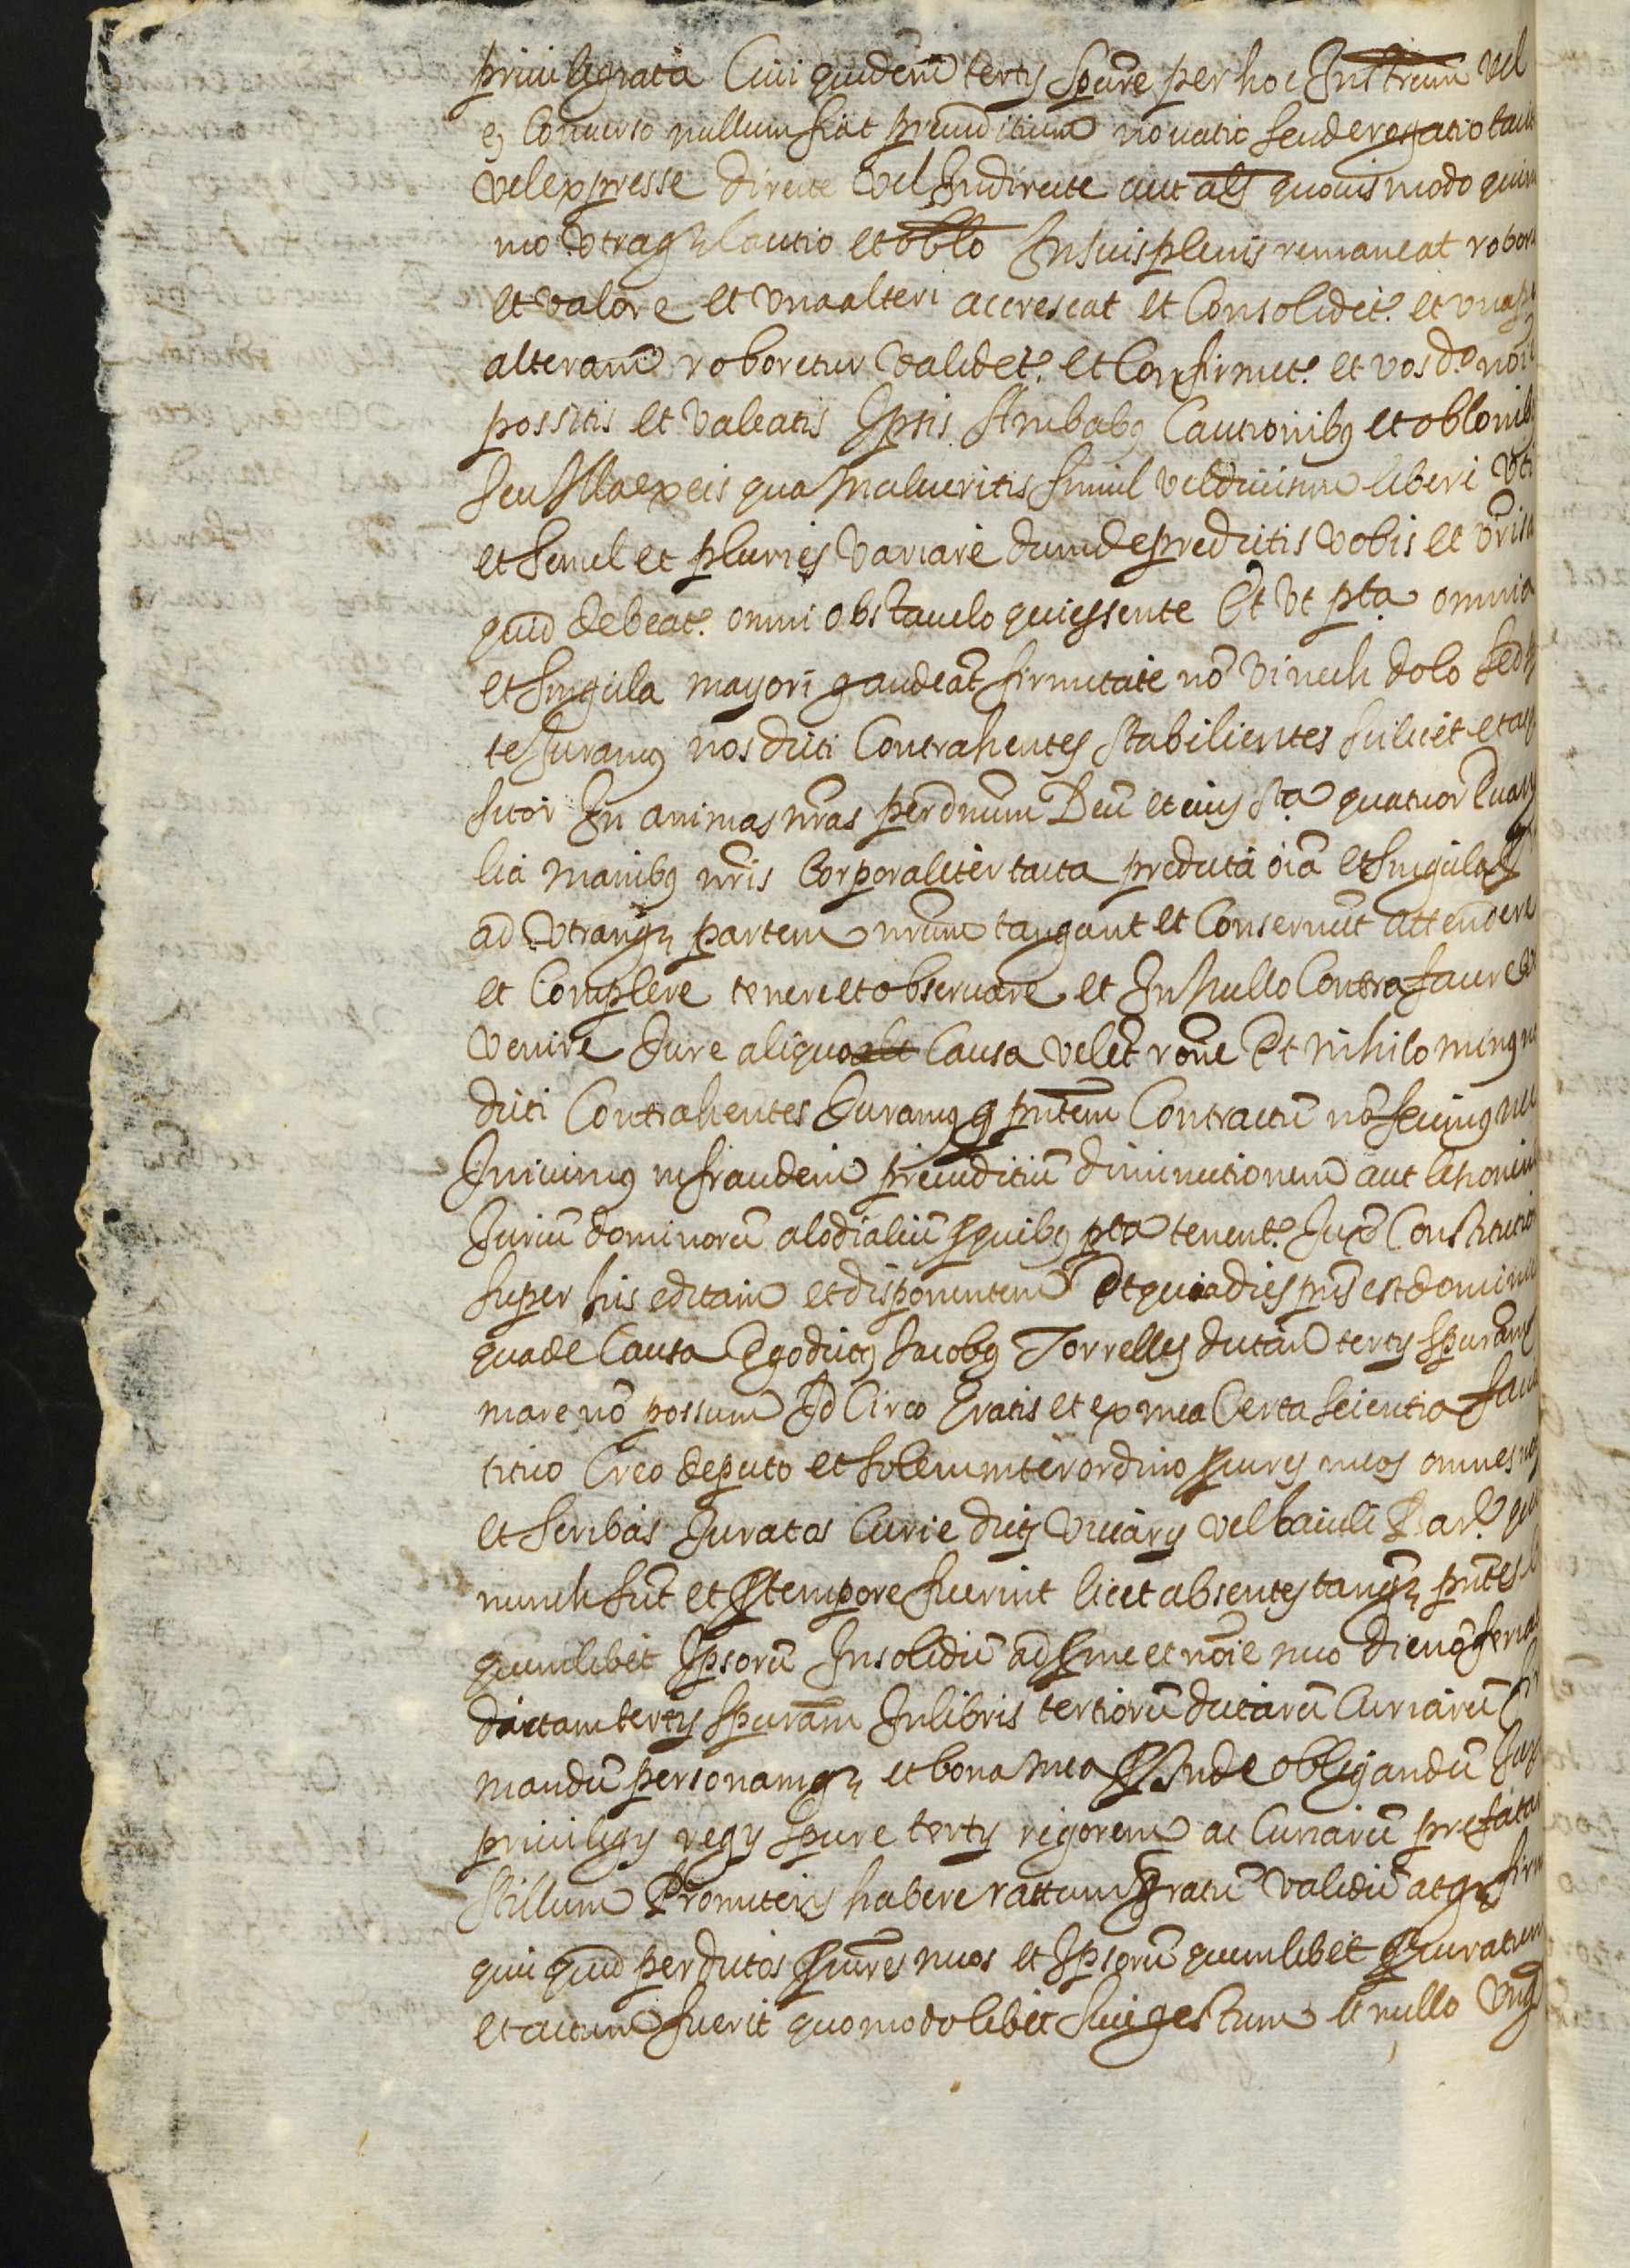 priuilegiata Cui quidem tertij Spure per hoc Instrum vel
e Conuerso nullum fiat preiuditium nouatio seu derogatio taci
vel expresse directe vel Indirecte aut als quouis modo quin
mo vtraqz Cautio et oblo In suis plenis remaneat robore
et valore et vna alteri accrescat et Consolidet. et vna p
alteram roboretur validet. et Confirmet. et vos d.º noie
possitis et valeatis Ipsis Ambabq Cautionibq et oblonibq
seu Illa ex eis qua Malueritis simul vel diuisim liberi vti
et semel et pluries variare dum de predictis vobis et vris
quid debeat. omni obstaculo quiessente Et vt pta omnia
et singula mayori gaudeat firmitate no vi nech dolo sed
te Juramq nos dicti Contrahentes stabilientes scilicet et
sitor In animas nras per dnum Deu et eius Sta quatuor Euang
lia manibq nris Corporaliter tacta predicta oia et singula
ad vtranqz partem nrum tangant et Conseruent attendere
et Complere tenere et obseruare et In Nullo Contra facere
venire Jure aliquo Causa vel et rone Et nihilo minq
dicti Contrahentes Juramq q pntem Contractu no fecimq nec
Iniuimq in fraudem preiuditiu diminutionem aut
Juriu dominoru alodialiu p quibq pta tenent. Juxa Constitutio
super his editam et disponentem Et quia dies pns est dominic
qua de Causa Ego dictq Jacobq Torrelles dictam tertij Spuram
mare no possum Id Circo Gratis et ex mea Certa scientia
tituo Creo deputo et solemniter ordino pures meos omnes
et scribas Juratos Curie dicti vicarij vel baiuli Bar. qui
nunch sut et p tempore fuerint licet absentes tanqz pntes
quemlibet Ipsoru Insolidu ad p me et noie meo die no feria
dictam tertij Spuram In libris tertioru dictaru Curiaru
mandu personamqz et bona mea p Inde obligandu Jux
priuilegij regij Spure tertij rigorem ac Curiaru prefata
stillum Promitens habere rattum gratu validu atqz firm
qui quid per dictos pures meos et Ipsoru quemlibet pcuratum
et actum fuerit quomodolibet siue gestum et nullo vnq